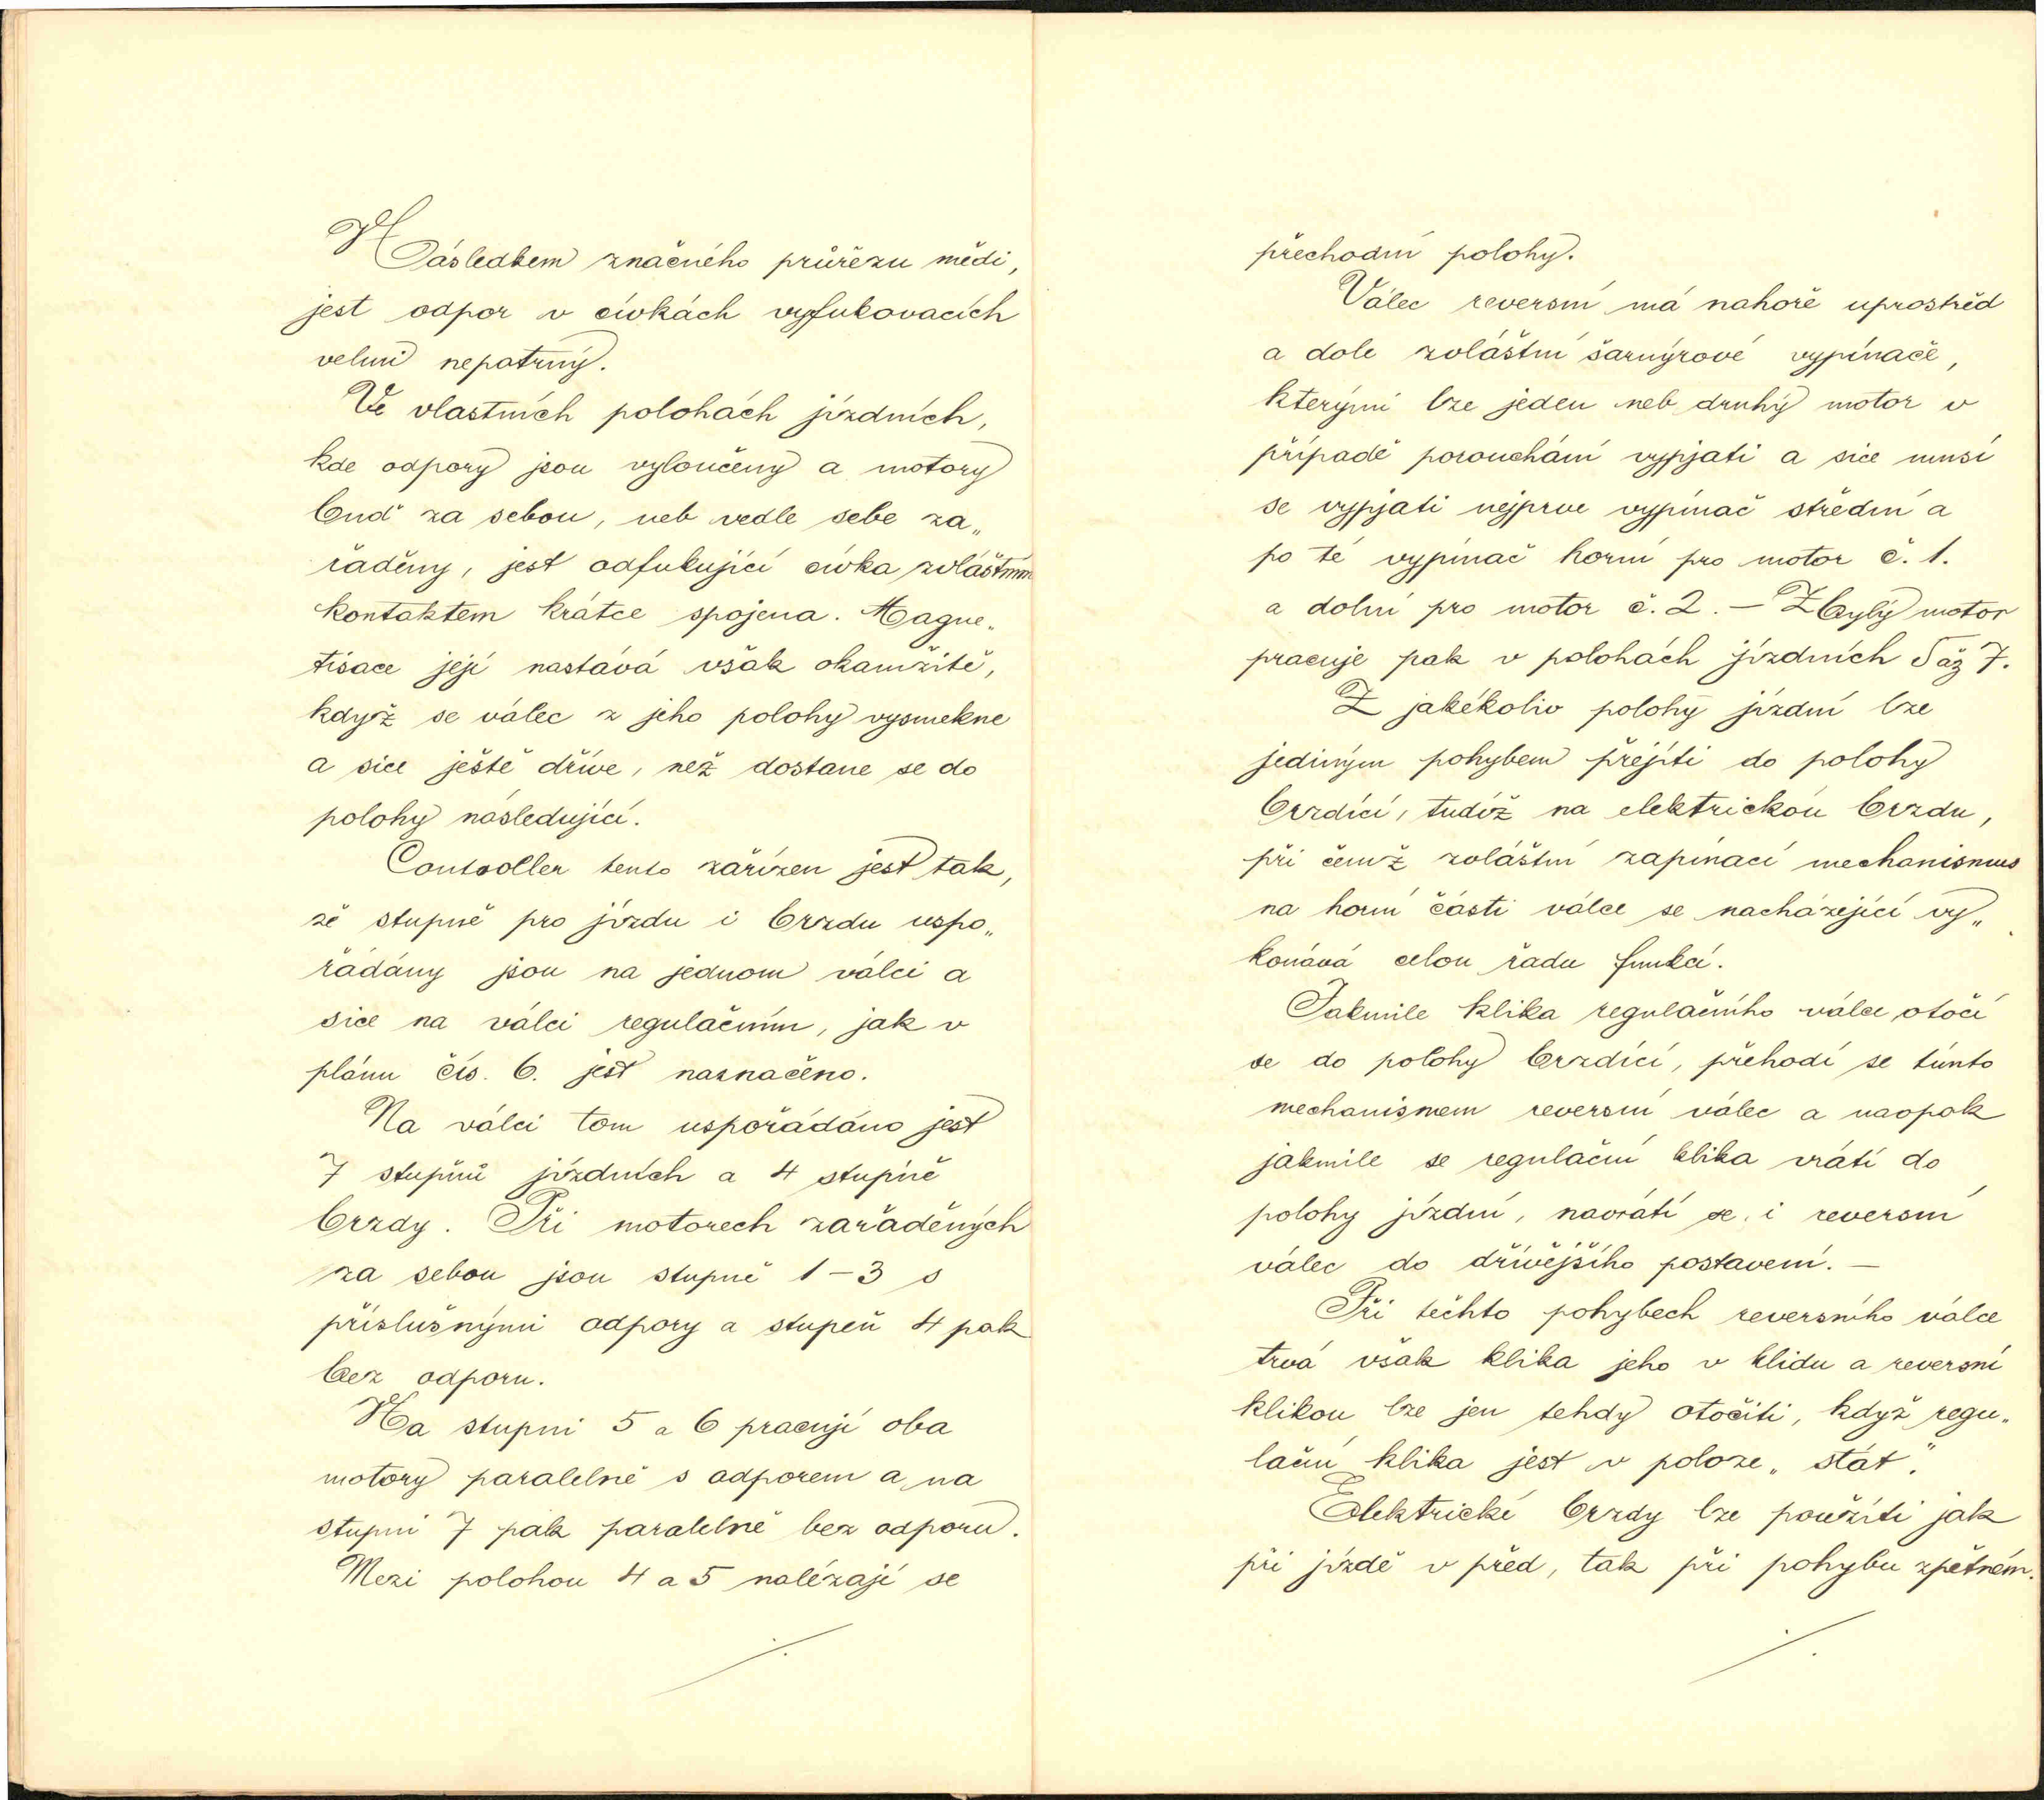 Následkem značného průřezu mědi,
jest odpor v cívkách vyfukovacích
velmi nepatrný.
Ve vlastních polohách jízdních,
kde odpory jsou vyloučeny a motory
buď za sebou, neb vedle sebe za„
řaděny, jest odfukující cívka zvláštním
kontaktem krátce spojena. Magne„
tisace její nastává však okamžitě,
když se válec z jeho polohy vysmekne
a sice ještě dříve, než dostane se do
polohy následující.
Controller tento zařízen jest tak,
že stupně pro jízdu i brzdu uspo„
řádány jsou na jednom válci a
sice na válci regulačním, jak v
plánu čís. 6. jest naznačeno.
Na válci tom uspořádáno jest
7 stupňů jízdních a 4 stupně
brzdy. Při motorech zařaděných
za sebou jsou stupně 1-3 s
příslušnými odpory a stupeň 4 pak
bez odporu.
Na stupni 5 a 6 pracují oba
motory paralelně s odporem a na
stupni 7 pak paralelně bez odporu.
Mezi polohou 4 a 5 nalézají se
./.
přechodní polohy.
Válec reversní má nahoře uprostřed
a dole zvláštní šarnýrové vypínače,
kterými lze jeden neb druhý motor v
případě porouchání vypjati a sice musí
se vypjati nejprve vypínač střední a
po té vypínač horní pro motor č. 1.
a dolní pro motor č. 2. — Zbylý motor
pracuje pak v polohách jízdních 5 až 7.
Z jakékoliv polohy jízdní lze
jediným pohybem přejíti do polohy
brzdící, tudíž na elektrickou brzdu,
při čemž zvláštní zapínací mechanismus
na horní části válce se nacházející vy„
konává celou řadu funkcí.
Jakmile klika regulačního válce otočí
se do polohy brzdící, přehodí se tímto
mechanismem reversní válec a naopak
jakmile se regulační klika vrátí do
polohy jízdní, navrátí se i reversní
válec do dřívějšího postavení. —
Při těchto pohybech reversního válce
trvá však klika jeho v klidu a reversní
klikou lze jen tehdy otočiti, když regu„
lační klika jest v poloze „stát".
Elektrické brzdy lze použíti jak
při jízdě v před, tak při pohybu zpětném.
./.